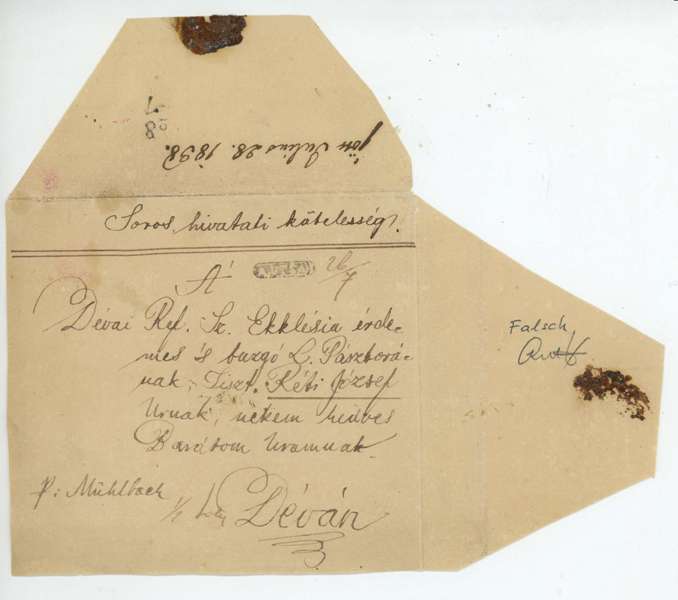 8
7
jött Julius 28. 1838.
Soros hivatali kötelesség.
A'
26/7
Dévai Ref. Sz. Ekklésia érde-
mes 's buzgó L. Pásztorá-
nak, Tiszt. Réti József
Urnak, nekem kedves
Barátom Uramnak.
p: Mühlbach
Déván
Falsch